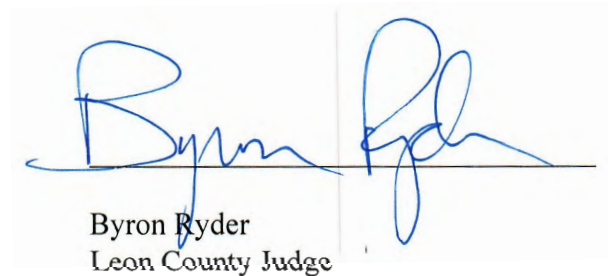 Byron Ryder
Byron Ryder
Leon County Judge